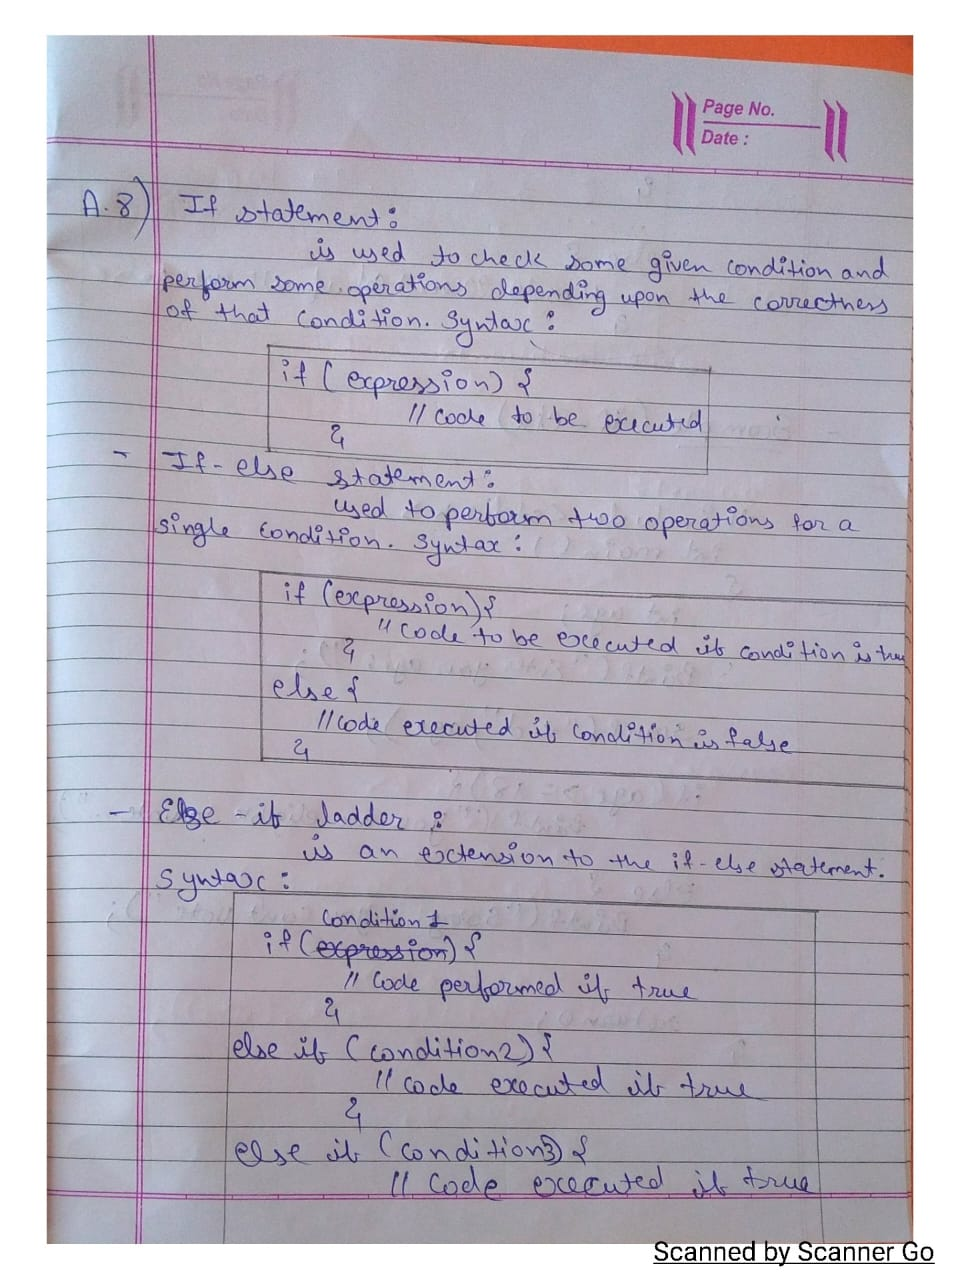 Page No.
Date :
A.8) If statement :
is used to check some given condition and
perform some operations depending upon the correctness
of that condition. Syntax :
if ( expression) {
// code to be executed
}
- If - else statement :
used to perform two operations for a
single condition. Syntax :
if (expression) {
// code to be executed if condition is true
}
else {
// code executed if condition is false
}
- Else - if ladder :
is an extension to the if - else statement.
Syntax :
condition 1
if (expression) {
// code performed if true
}
else if (condition2) {
// code executed if true
}
else if (condition3) {
// code executed if true
Scanned by Scanner Go